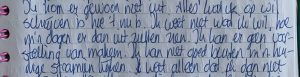 Ik kom er gewoon niet uit. Alles wat ik op wil
schrijven is het nu b. Ik weet niet wat ik wil, hoe
m'n dagen er dan uit zullen zien. Ik kan er geen voor-
stelling van maken. Ik kan niet goed buiten m'n hu-
dige stramien kijken. Ik weet alleen dat ik dan niet